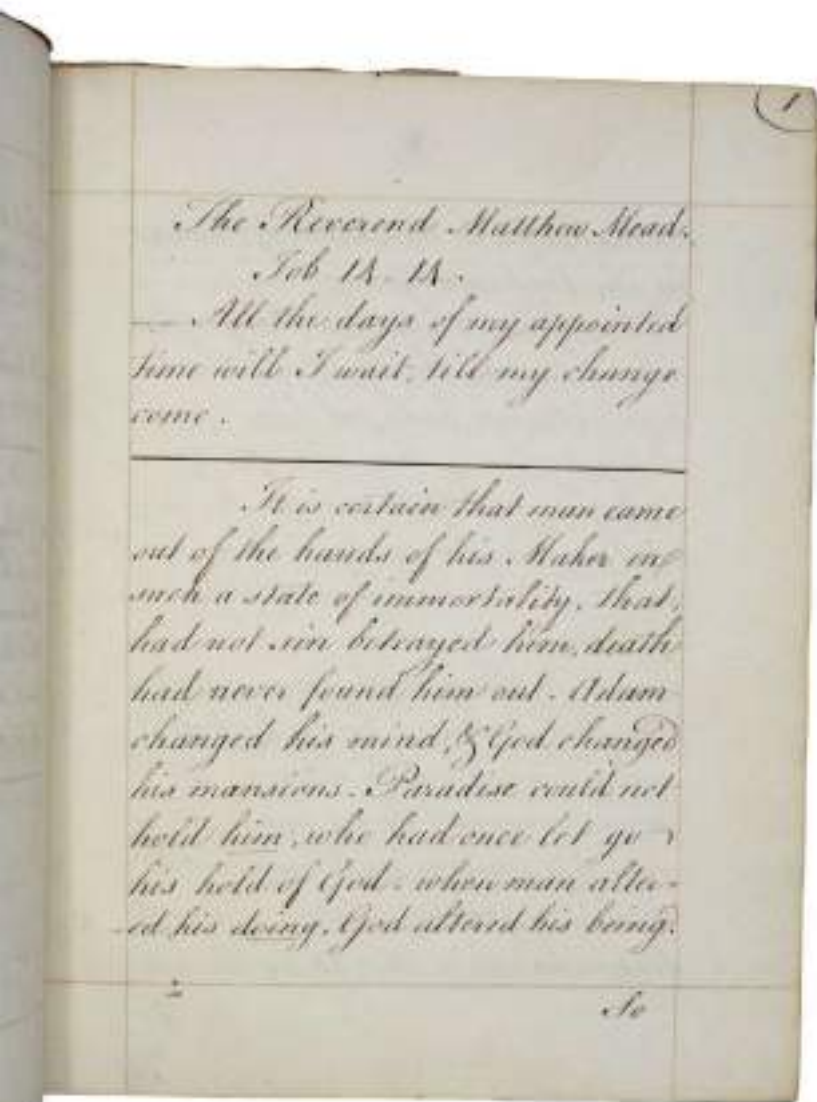 1
The Reverend Matthew Mead.
Job 14-14.
All the days of my appointed
time will I wait, till my change
come.
It is certain that man came
out of the hands of his Maker in
such a state of immortality, that,
had not sin betrayed him, death
had never found him out. Adam
changed his mind, & God changed
his mansions. Paradise could not
hold him, who had once let go
his hold of God. when man alter-
-ed his doing, God altered his being.
So